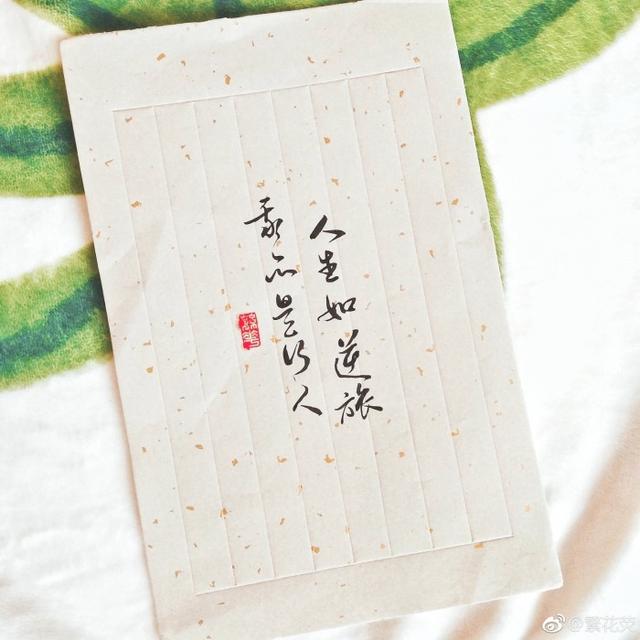 人生如逆旅
我亦是行人
@繁花荧